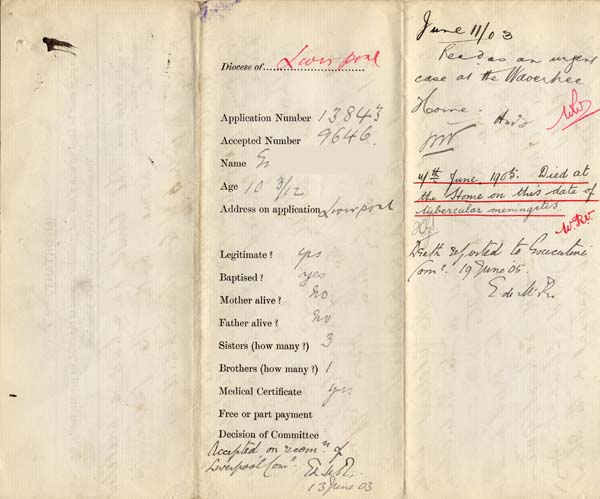 Diocese of Liverpool
Application Number 13843
Accepted Number 9646
Name E
Age 10 3/12
Address on application Liverpool
Legitimate? yes
Baptised? yes
Mother alive? No
Father alive? No
Sisters (how many?) 3
Brothers (how many?) 1
Medical Certificate yes
Free or part payment
Decision of Committee
Accepted on recomn. of
Liverpool Comee.
13 June 03
June 11/03
Read as an urgent
case at the Waverlee
Home.
June, 1905. Died at
the Home on this date of
tubercular meningitis.
W.R.W.
Death reported to Executive
Come. 19 June 05.
E de M. R.